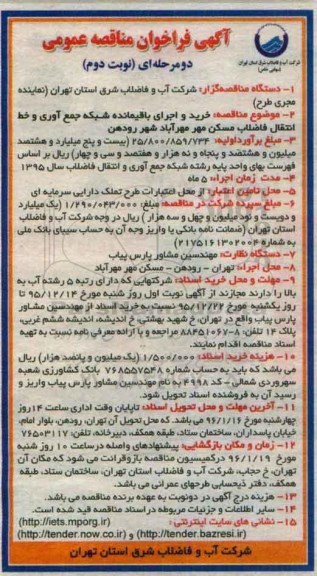 آگهی فراخوان مناقصه عمومی
دو مرحله‌ای (نوبت دوم)
شرکت آب و فاضلاب شرق استان تهران
(سهامی خاص)
۱- دستگاه مناقصه‌گزار: شرکت آب و فاضلاب شرق استان تهران (نماینده
مجری طرح)
۲- موضوع مناقصه: خرید و اجرای باقیمانده شبکه جمع آوری و خط
انتقال فاضلاب مسکن مهر مهرآباد شهر رودهن
۳- مبلغ برآورد اولیه: ۲۵/۸۰۰/۸۵۹/۷۳۴ (بیست و پنج میلیارد و هشتصد
میلیون و هشتصد و پنجاه و نه هزار و هفتصد و سی و چهار) ریال بر اساس
فهرست بهای واحد پایه رشته شبکه جمع آوری و انتقال فاضلاب سال ۱۳۹۵
۴- مدت زمان اجراء: ۵ ماه
۵- محل تامین اعتبار: از محل اعتبارات طرح تملک دارایی سرمایه ای
۶- مبلغ سپرده شرکت در مناقصه: مبلغ ۱/۲۹۰/۰۴۳/۰۰۰ (یک میلیارد
و دویست و نود میلیون و چهل و سه هزار) ریال در وجه شرکت آب و فاضلاب
استان تهران (ضمانت نامه بانکی یا واریز وجه آن به حساب سیبای بانک ملی
به شماره ۲۱۷۵۱۶۱۳۰۲۰۰۴)
۷- دستگاه نظارت: مهندسین مشاور پارس پیاب
۸- محل اجراء: تهران - رودهن - مسکن مهر مهرآباد
۹- مهلت و محل خرید اسناد: شرکتهایی که دارای رتبه ۵ رشته آب به
بالا را دارند مجازند از آگهی نوبت اول روز شنبه مورخ ۹۵/۱۲/۱۴ تا
روز یکشنبه مورخ ۹۵/۱۲/۲۲ نسبت به خرید اسناد از مهندسین مشاور
پارس پیاب واقع در تهران، خ شهید بهشتی، خ اندیشه، اندیشه ششم غربی،
پلاک ۱۴ تلفن: ۸-۸۸۴۵۱۰۶۷ مراجعه و با ارائه معرفی نامه نسبت به تهیه
اسناد مناقصه اقدام نمایند.
۱۰- هزینه خرید اسناد: ۱/۵۰۰/۰۰۰ (یک میلیون و پانصد هزار) ریال
می باشد که باید به حساب شماره ۷۶۸۵۵۷۵۴۸ بانک کشاورزی شعبه
سهروردی شمالی - کد ۴۹۹۸ به نام مهندسین مشاور پارس پیاب واریز و
رسید آن به فروشنده اسناد تحویل شود.
۱۱- آخرین مهلت و محل تحویل اسناد: تا پایان وقت اداری ساعت ۱۴ روز
چهارشنبه مورخ ۹۶/۱/۱۶ می باشد. که محل تحویل آن تهران، رودهن، بلوار امام،
خیابان پاسداران، ساختمان ستاد، طبقه همکف، دبیرخانه، تلفن: ۷۶۵۰۳۱۱۷
۱۲- زمان و مکان بازگشایی: پیشنهادهای واصله در ساعت ۱۰ روز شنبه
مورخ ۹۶/۱/۱۹ در کمیسیون مناقصه بازوقرائت می شود که مکان آن
تهران، خ حجاب، شرکت آب و فاضلاب استان تهران، ساختمان ستاد، طبقه
همکف، دفتر ذیحسابی طرحهای عمرانی می باشد.
۱۳- هزینه درج آگهی در دو نوبت به عهده برنده مناقصه می باشد.
۱۴- سایر اطلاعات و جزئیات مربوطه در اسناد مناقصه قید شده است.
۱۵- نشانی های سایت اینترنتی: (http://iets.mporg.ir)
(http://tender.bazresi.ir) و (http://tender.now.co.ir)
شرکت آب و فاضلاب شرق استان تهران